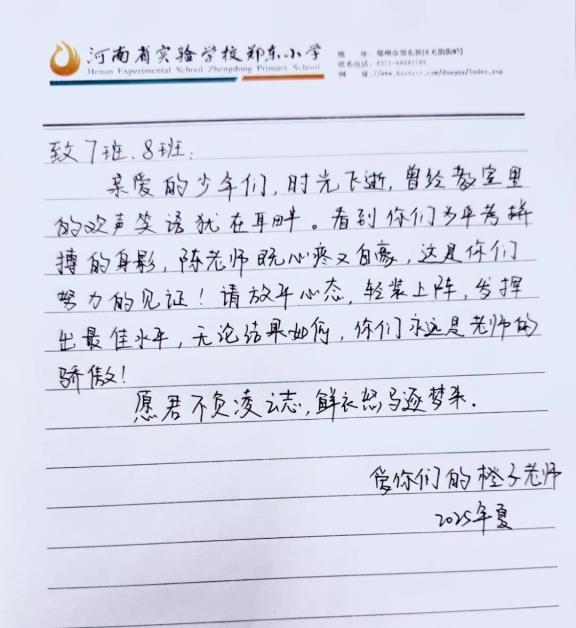 河南省实验学校郑东小学
Henan Experimental School Zhengdong Primary School
致7班、8班:
亲爱的少年们,时光飞逝,曾经教室里
的欢声笑语犹在耳畔。看到你们为中考拼
搏的身影,陈老师既心疼又自豪,这是你们
努力的见证!请放平心态,轻装上阵,发挥
出最佳水平,无论结果如何,你们永远是老师的
骄傲!
愿君不负凌云志,鲜衣怒马逐梦来.
爱你们的橙子老师
2025年夏